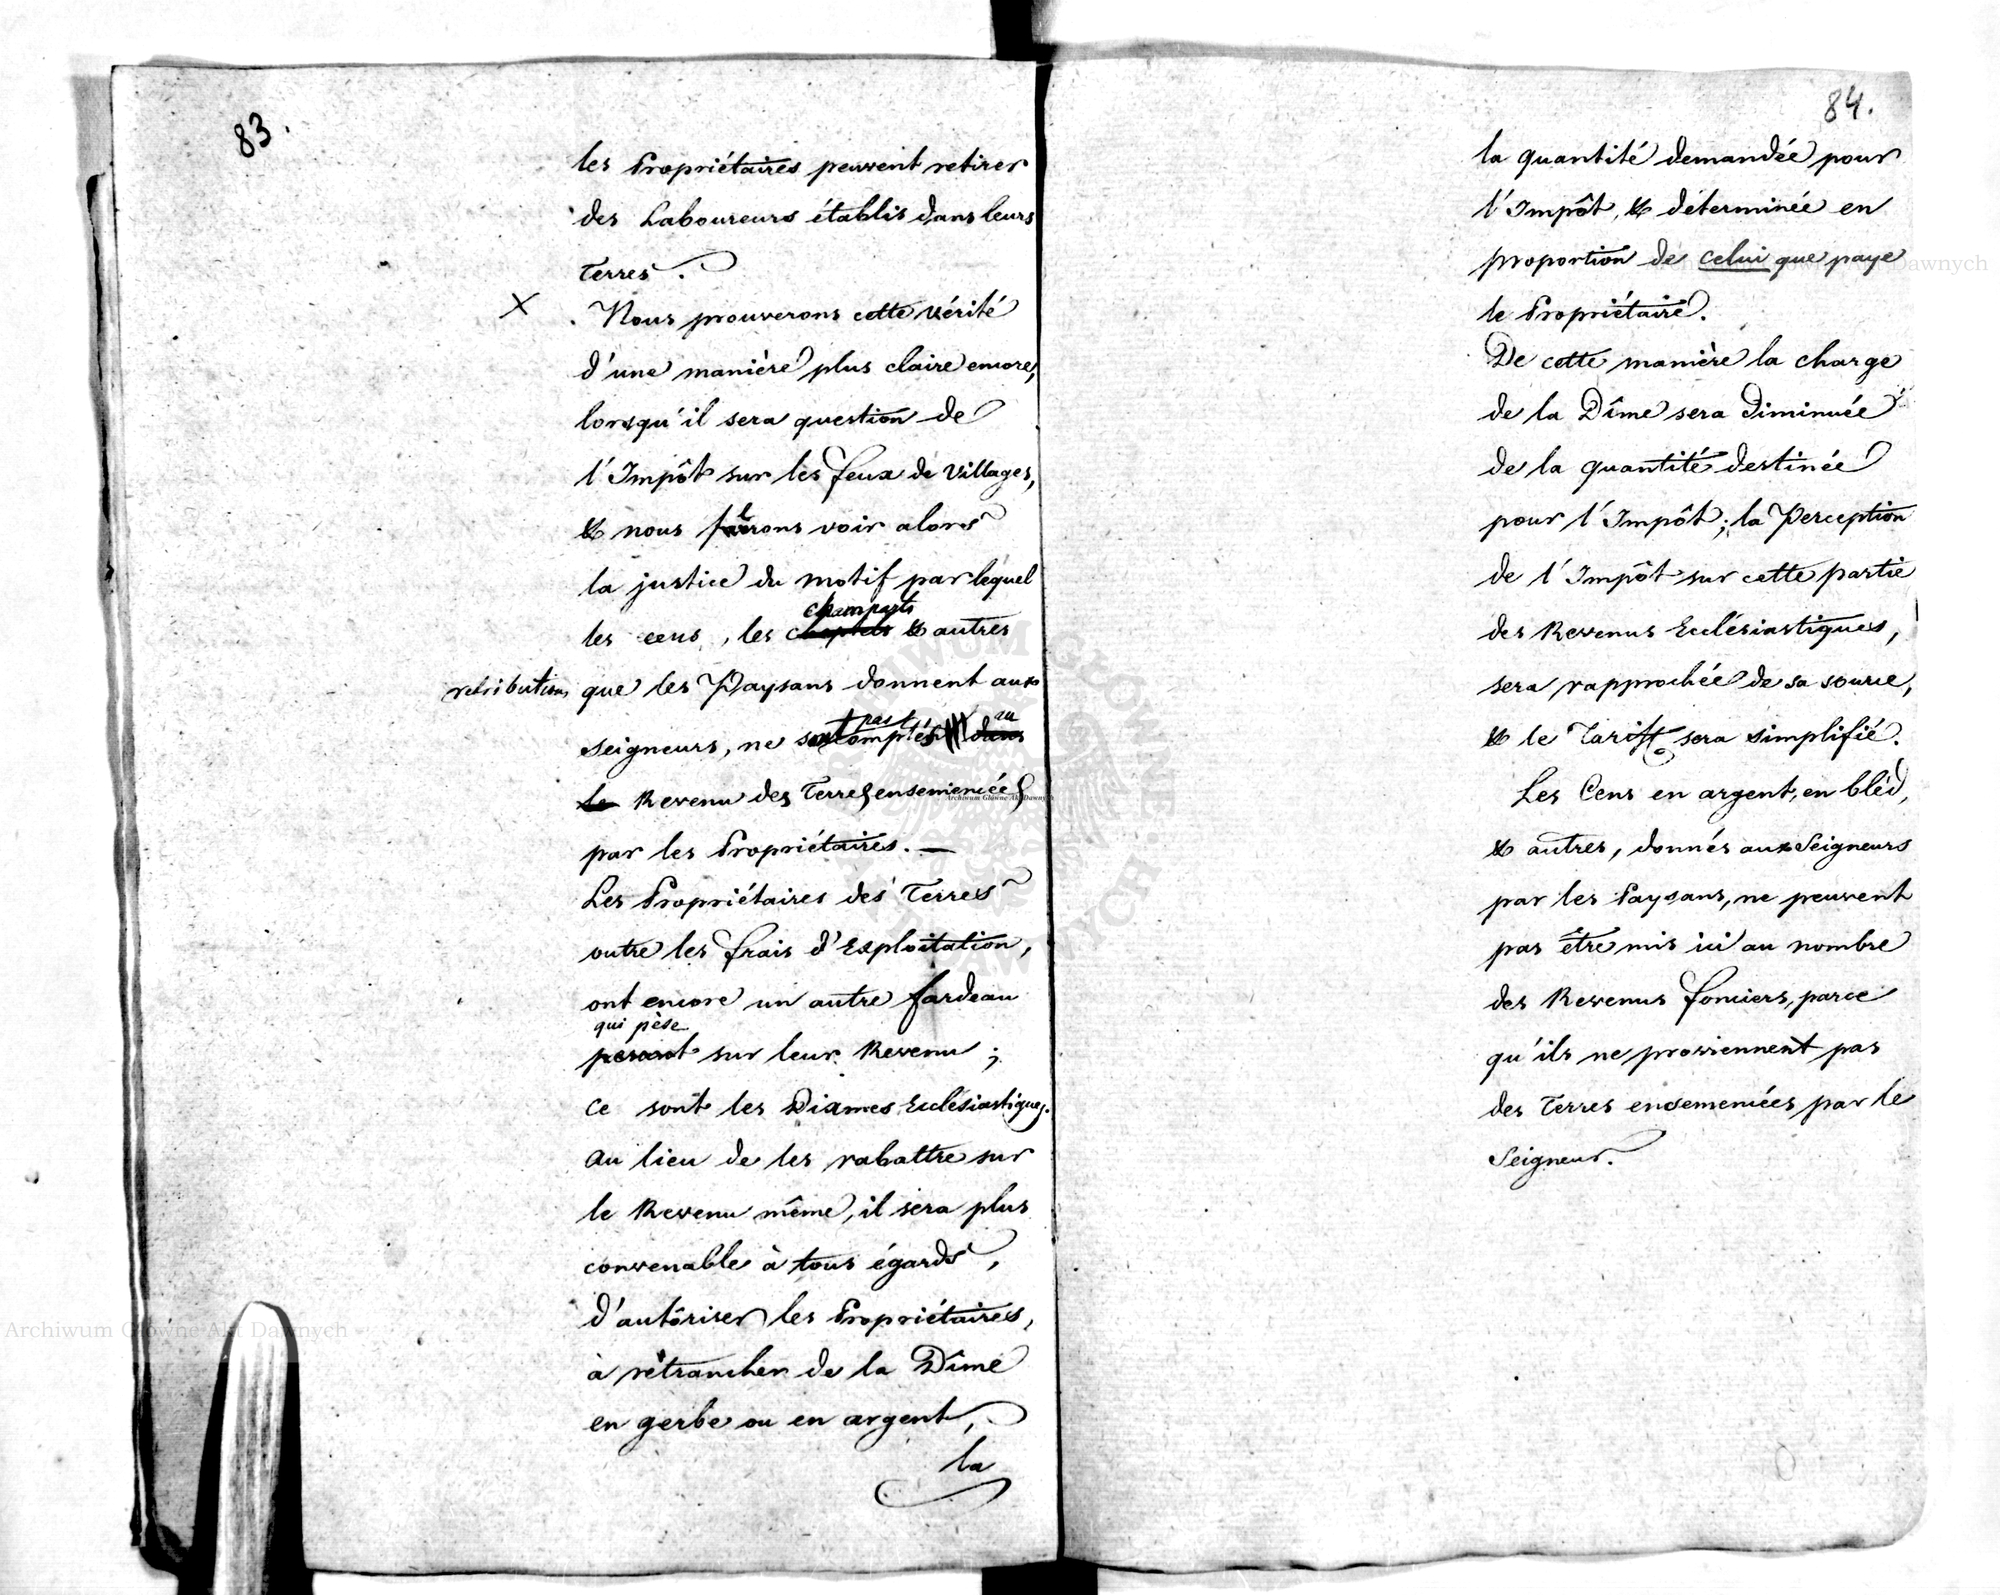 83.
les Propriétaires peuvent retirer
des Laboureurs établis dans leurs
Terres.
X . Nous prouverons cette vérité
d'une manière plus claire encore,
lorsqu'il sera question de
l'Impôt sur les feux de Villages,
& nous ferons voir alors
la justice du motif par lequel
champarts
les cens, les & autres
retributions que les Paysans donnent aux
pas au
Seigneurs, ne sont comptés dans
le Revenu des Terres ensemencées
par les Propriétaires. —
Les Propriétaires des Terres
outre les frais d'Exploitation,
ont encore un autre fardeau
qui pèse
pesant sur leur Revenu ;
ce sont les Diames Ecclésiastiques.
au lieu de les rabattre sur
le Revenu même, il sera plus
convenable à tous égards,
d'autôriser les Propriétaires,
à rétrancher de la Dîme
en gerbe ou en argent,
la
84.
la quantité demandée pour
l'Impôt, & déterminée en
proportion de celui que paye
le Propriétaire.
De cette manière la charge
de la Dîme sera diminuée
de la quantité destinée
pour l'Impôt; la Perception
de l'Impôt sur cette partie
des Revenus Ecclésiastiques,
sera rapprochée de sa source,
& le Tariff sera simplifié.
Les Cens en argent, en bléd,
& autres, donnés aux Seigneurs
par les Paysans, ne peuvent
pas être mis ici au nombre
des Revenus fonciers, parce
qu'ils ne proviennent pas
des Terres ensemencées par le
Seigneur.
Archiwum Główne Akt Dawnych